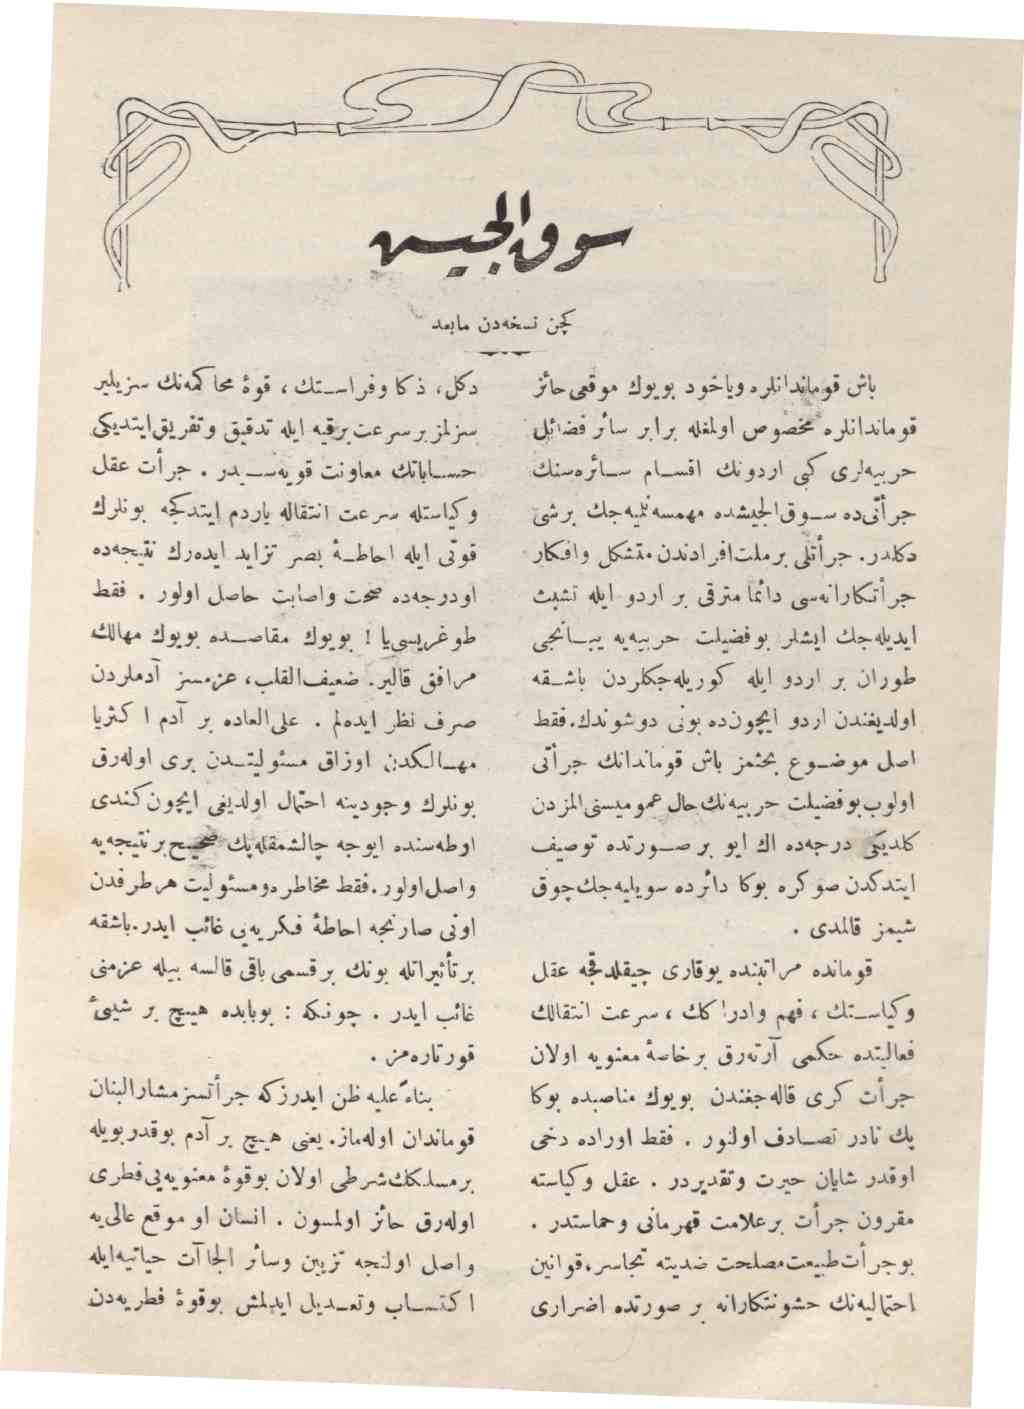 سوق‌الجیش
کچن نسخه‌دن مابعد
باش قوماندانلره ویاخود بویوك موقعی حائز
قوماندانلره مخصوص اولمغله برابر سائر فضائل
حربیه‌لری کبی اردونك اقسـام سـائره‌سنك
جرأتی‌ده سـوق‌الجیشده مهمسه‌نلیه‌جك برشی
دکلدر. جرأتلی برملت‌افرادندن متشکل وافکار
جرأتکارانه‌سی دائما مترقی بر اردو ایله تشبث
ایدیله‌جك ایشلر بوفضیلت حربیه‌یه یبـانجی
طوران بر اردو ایله کوریله‌جکلردن باشـقه
اولدیغندن اردو ایچون‌ده بونی دوشوندك. فقط
اصل موضـوع بحثمز باش قوماندانك جرأتی
اولوب‌بوفضیلت حربیه‌نك‌حال‌عمومیسنی‌المزدن
کلدیکی درجه‌ده اك ایو بر صـورتده توصیف
ایتدکدن صوکره بوکا دائرده سویلیه‌جك‌چوق
شیمز قالمدی .
قومانده مراتبنده یوقاری چیقلدقجه عقل
وکیاسـتك ، فهم وادراکك ، سرعت انتقالك
فعالیتده حکمی آرته‌رق برخاصۀ معنویه اولان
جرأت کری قاله‌جغندن بویوك مناصبده بوکا
پك نادر تصـادف اولنور . فقط اوراده دخی
اوقدر شایان حیرت وتقدیردر . عقل وکیاسته
مقرون جرأت برعلامت قهرمانی وحماستدر .
بوجرأت‌طبیعت‌مصلحت ضدینه تجاسر، قوانین
احتمالیه‌نك خشونتکارانه بر صورتده اضراری
دکل، ذکا وفراسـتك ، قوۀ محاکمه‌نك سزیلیر
سزلمز برسرعت‌برقیه ایله تدقیق وتفریق‌ایتدیکی
حسـاباتك معاونت قویه‌سـیدر . جرأت عقل
وکیاستله سرعت انتقاله یاردم ایتدکجه بونلرك
قوتی ایله احاطـۀ بصر تزاید ایده‌رك نتیجه‌ده
اودرجه‌ده صحت واصابت حاصل اولور . فقط
طوغریسی‌یا ! بویوك مقاصـده بویوك مهالك
مرافق قالیر. ضعیف‌القلب، عزمسز آدملردن
صرف نظر ایده‌لم . علی‌العاده بر آدم اکثریا
مهـالکدن اوزاق مسئولیتـدن بری اوله‌رق
بونلرك وجودینه احتمال اولدیغی ایچون‌کندی
اوطه‌سنده ایوجه چالشمقله‌پك صحیح‌برنتیجه‌یه
واصل‌اولور. فقط مخاطره‌ومسئولیت هرطرفدن
اونی صارنجه احاطۀ فکریه‌یی غائب ایدر. باشقه
برتأثیراتله بونك برقسمی باقی قالسه بیله عزمنی
غائب ایدر . چونکه : بوبابده هیچ بر شیئ
قورتاره‌مز .
بناءً علیه ظن ایدرزکه جرأتسز مشارالبنان
قوماندان اوله‌ماز. یعنی هیچ بر آدم بوقدر بویله
برمسلکك‌شرطی اولان بوقوۀ معنویه‌یی‌فطری
اوله‌رق حائز اولمسون . انسان او موقع عالی‌یه
واصل اولنجه تزیین وسائر الجاآت حیاتیه‌ایله
اکتسـاب وتعـدیل ایدیلمش بوقوۀ فطریه‌دن